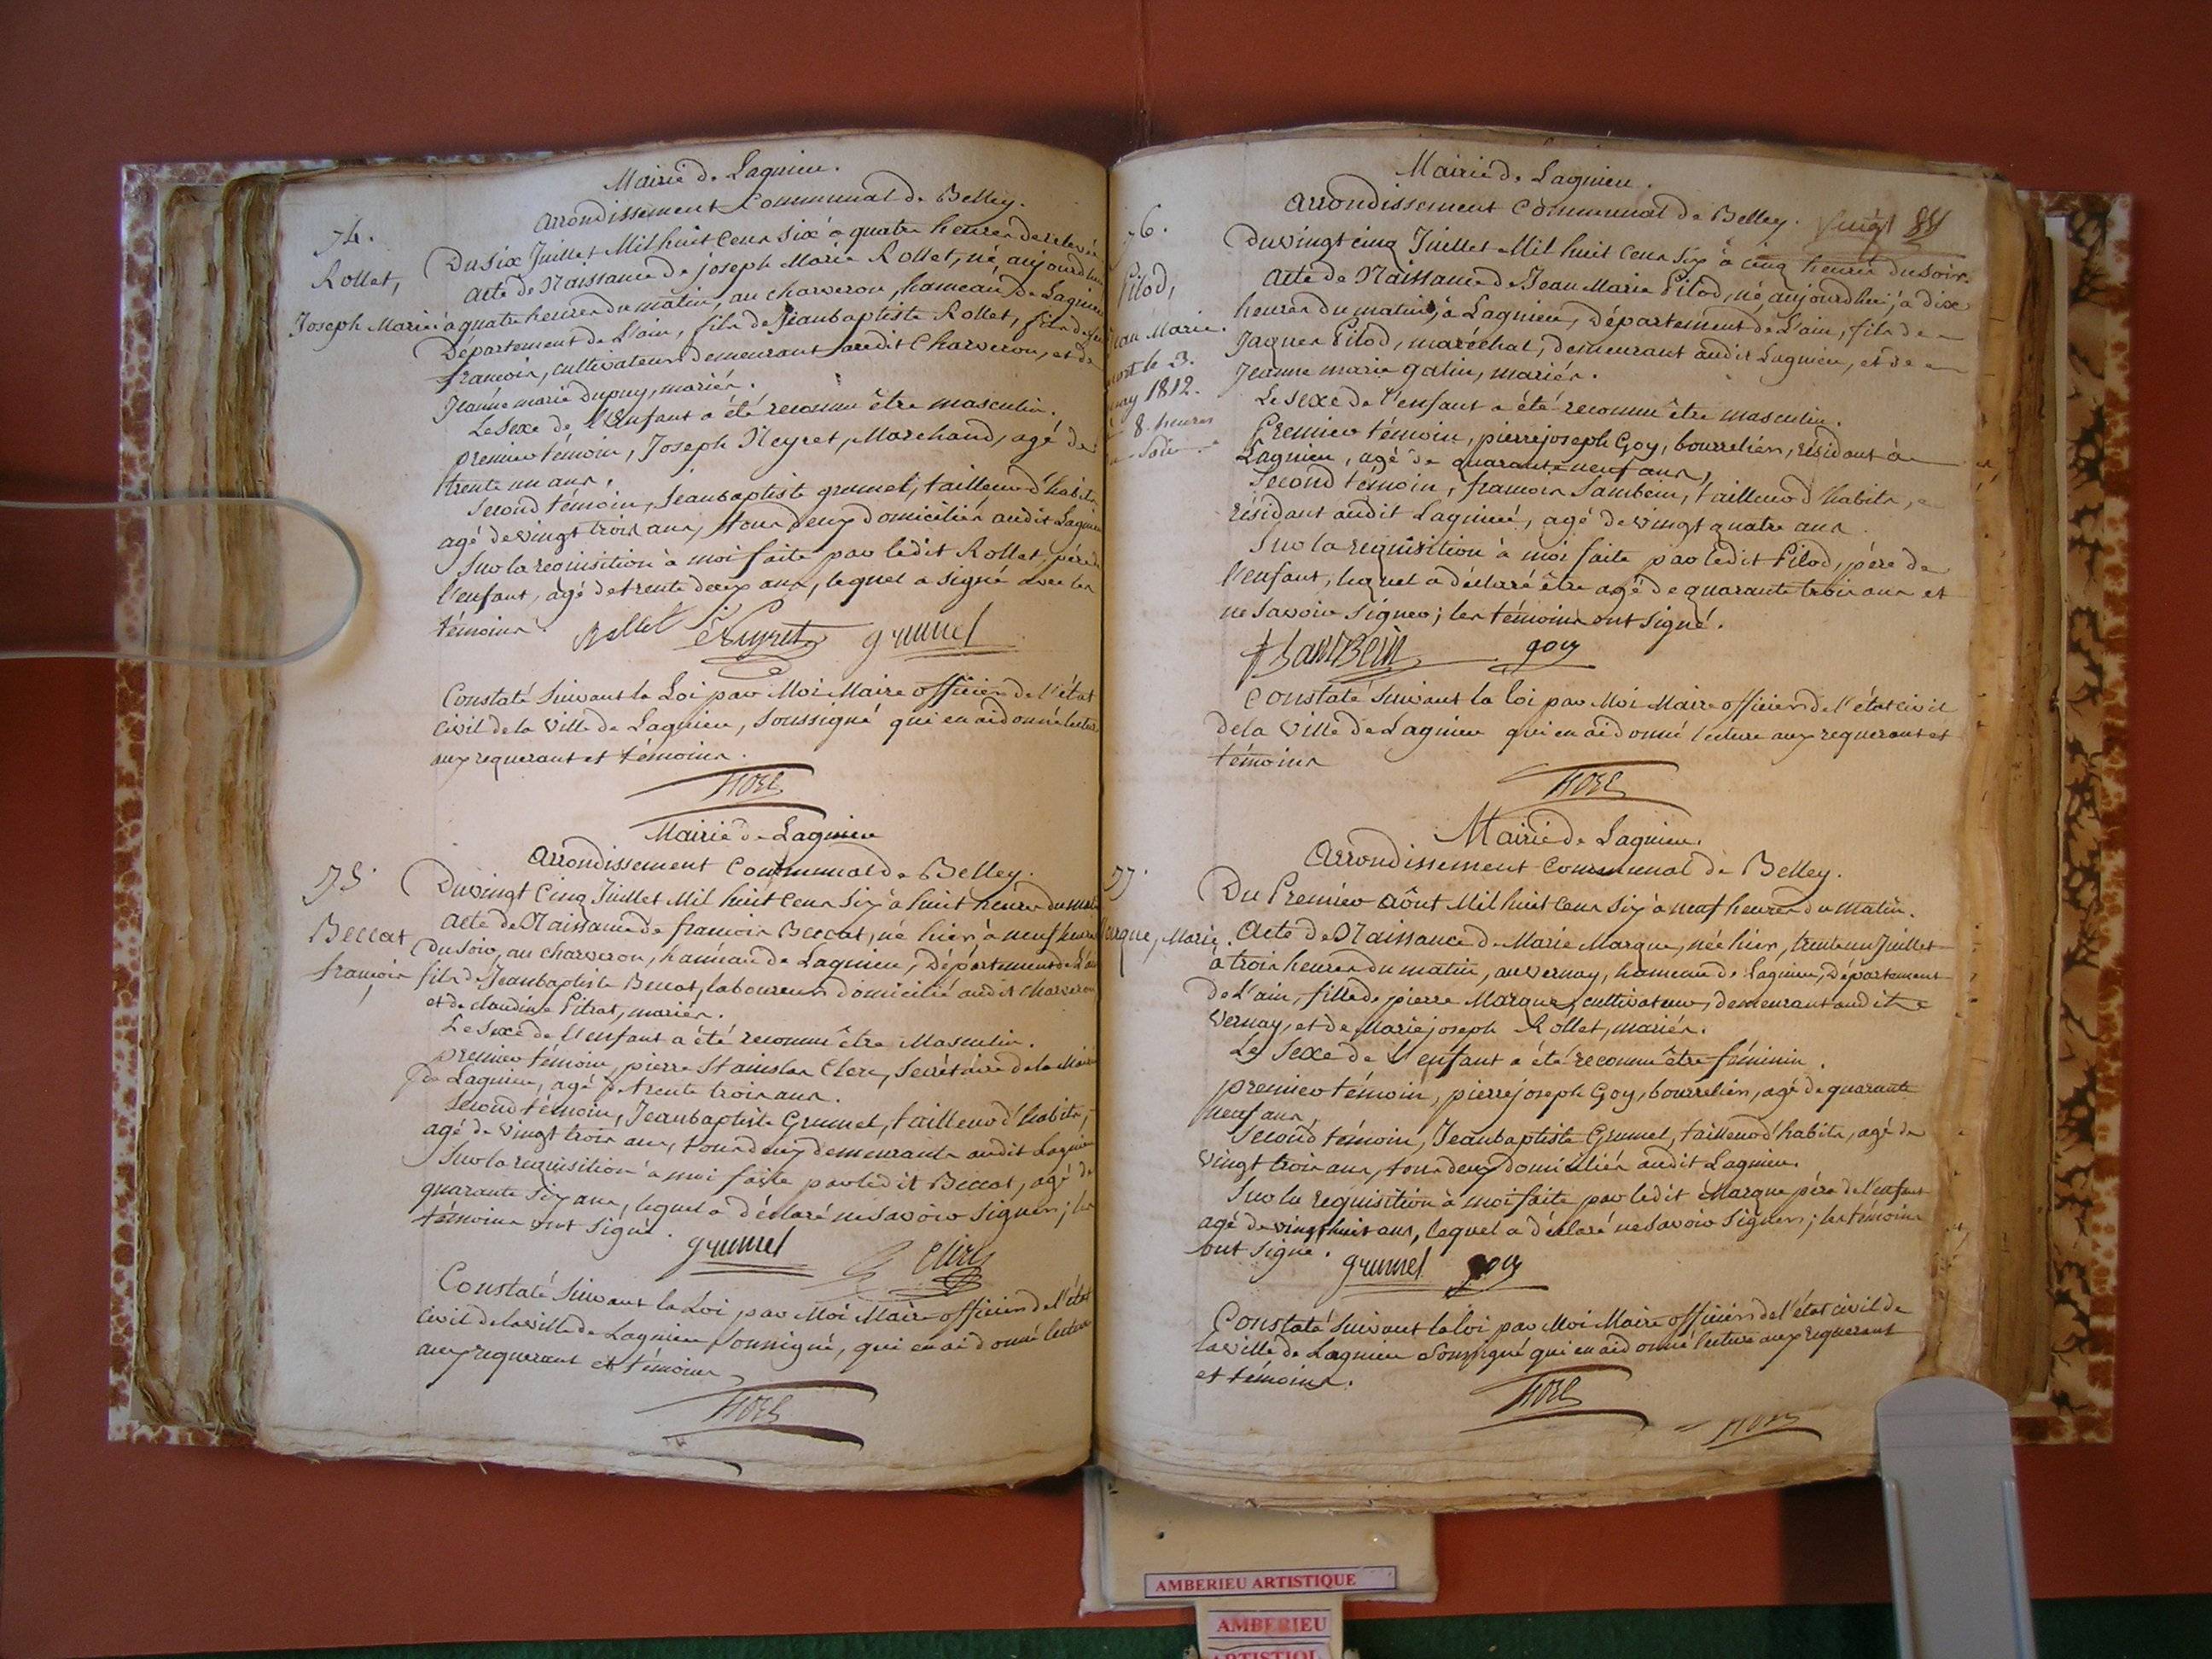 Mairie de Lagnieu.
Arrondissement Communal de Belley.
74.
Rollet,
Joseph Marie
Du six Juillet Mil huit Cens six à quatre heures de relevée
Acte de Naissance de joseph Marie Rollet, né aujourdhui
à quatre heures du matin, au charveron, hameau de Lagnieu
Département de L'ain, fils de Jeanbaptiste Rollet, fils de feu
francois, cultivateur demeurant audit Charveron, et de
Jeanne marie dupuy, mariés.
Le Sexe de l'Enfant a été reconnu être masculin.
premier témoin, Joseph Neyret, Marchand, agé de
trente un ans,
Second témoin, Jeanbaptiste grumet, tailleur d'habits
agé de vingt trois ans, tous deux domiciliés audit Lagnieu
Sur la requisition à moi faite par ledit Rollet, pére de
l'enfant, agé de trente deux ans, lequel a signé avec les
témoins. Rollet grumel
Constaté Suivant la Loi par Moi Maire officier de l'état
Civil de la Ville de Lagnieu, Soussigné qui en ai donné lecture
aux requerant et témoins.
Mairie de Lagnieu
Arrondissement Communal de Belley.
75.
Beccat
francois
Du vingt Cinq Juillet Mil huit Cens Six à huit heures du matin
Acte de Naissance de francois Beccat, né hier, à neuf heures
Du soir, au charveron, hameau de Lagnieu, Département de L'ain
fils de Jeanbaptiste Beccat, laboureur domicilié audit charveron
et de claudine Pitrat, mariés.
Le Sexe de l'enfant a été reconnu être Masculin.
premier témoin, pierre Stanislas Clerc, Secrétaire de la Mairie
de Lagnieu, agé de trente trois ans.
Second témoin, Jeanbaptiste Grumel, tailleur d'habits,
agé de vingt trois ans, tous deux demeurants audit Lagnieu
Sur la requisition à moi faite par ledit Beccat, agé de
quarante Six ans, lequel a déclaré ne Savoir Signer; les
témoins ont signé.
grumel Clerc
Constaté Suivant la Loi par Moi Maire officier de l'état
Civil de la ville de Lagnieu Soussigné, qui en ai donné lecture
aux requerant et témoins
Mairie de Lagnieu.
Arrondissement Communal de Belley. Vingt
76.
Pilod,
Jean Marie.
mort le 3.
may 1812.
8. heures
Soir.
Du vingt cinq Juillet Mil huit Cens Six à cinq heures du soir.
Acte de Naissance de Jean Marie Pilod, né, aujourdhui, à dix
heures du matin, à Lagnieu, Département de L'ain, fils de
Jaques Pilod, maréchal, demeurant audit Lagnieu, et de
Jeanne marie galin, mariés.
Le sexe de l'enfant a été reconnu être masculin.
Premier témoin, pierre joseph Goy, bourrelier, résidant à
Lagnieu, agé de quarante neuf ans,
Second témoin, francois Sambein, tailleur d'habits,
résidant audit Lagnieu, agé de vingt quatre ans.
Sur la requisition à moi faite par ledit Pilod, pére de
l'enfant, lequel a déclaré être agé de quarante trois ans et
ne Savoir Signer; les témoins ont signé.
f SamBein goy
Constaté Suivant la loi par Moi Maire officier de l'état civil
de la Ville de Lagnieu qui en ai donné lecture aux requerant et
témoins
Mairie de Lagnieu.
Arrondissement communal de Belley.
77.
Marque, Marie.
Du Premier Aôut Mil huit Cens Six à neuf heures du matin.
Acte de Naissance de Marie Marque, née hier, trente un Juillet
à trois heures du matin, au vernay, hameau de Lagnieu, Département
de L'ain, fille de pierre Marque, cultivateur, demeurant audit
Vernay, et de Marie joseph Rollet, mariés.
Le Sexe de l'enfant a été reconnu être féminin.
premier témoin, pierre joseph Goy, bourrelier, agé de quarante
neuf ans,
Second témoin, Jeanbaptiste Grumel, tailleur d'habits, agé de
vingt trois ans, tous deux domiciliés audit Lagnieu.
Sur la requisition à moi faite par ledit Marque, pére de l'enfant
agé de vingt huit ans, lequel a déclaré ne Savoir Signer; les témoins
ont signé. grumel goy
Constaté Suivant la loi par Moi Maire officier de l'état civil de
la Ville de Lagnieu Soussigné qui en ai donné lecture aux requerant
et témoins.
AMBERIEU ARTISTIQUE
AMBERIEU